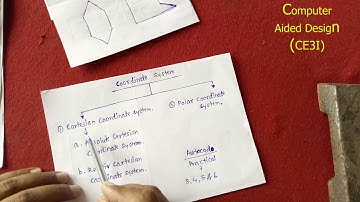 Computer
Aided Design
(CE3I)
Coordinate System
① Cartesian Coordinate System.
② Polar Coordinate
System.
a. Absolute Cartesian
Coordinate System.
b. Cartesian
Coordinate System.
Autocad
Practical
3, 4, 5 & 6